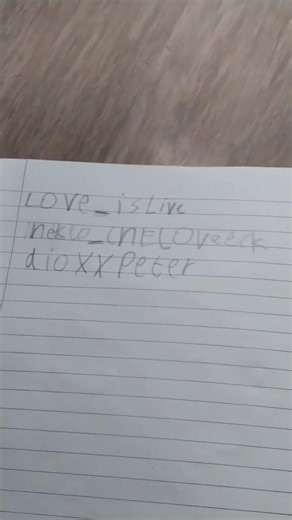 LOVE_isLive
nekto_CHELOveeck
dioXXPeter